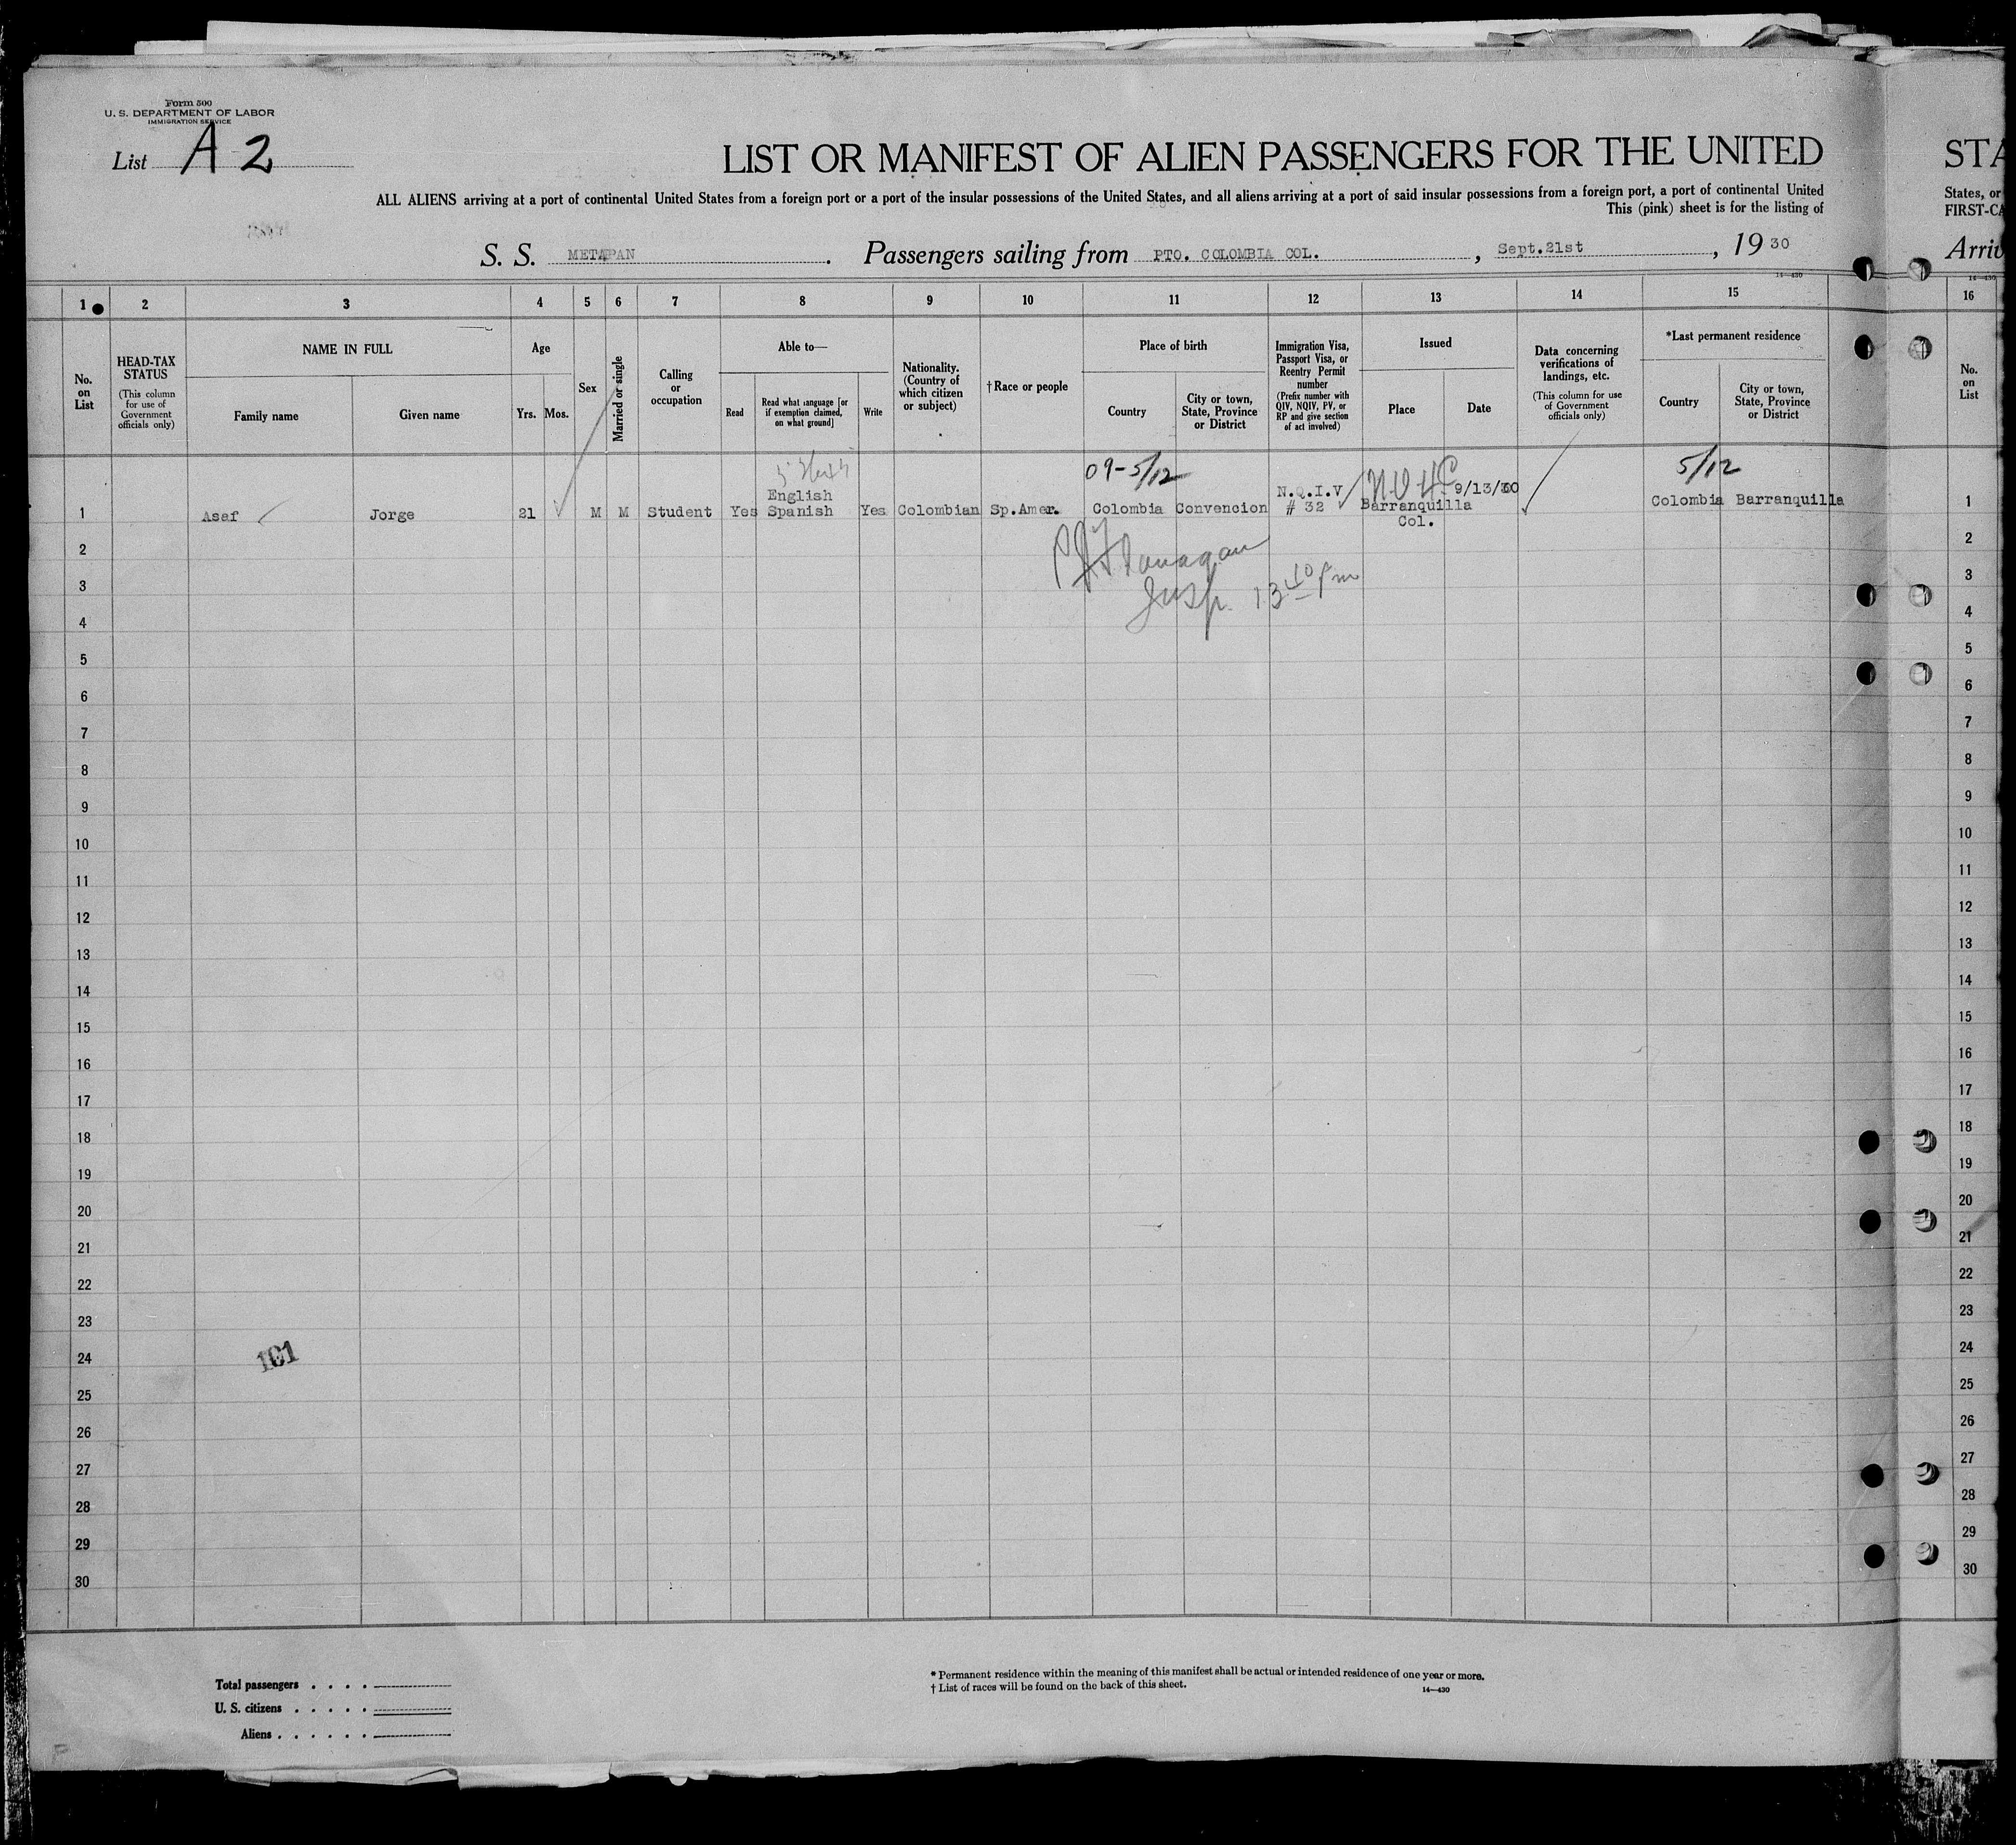 Form 500
U. S. DEPARTMENT OF LABOR
IMMIGRATION SERVICE
List A 2
LIST OR MANIFEST OF ALIEN PASSENGERS FOR THE UNITED
STA
ALL ALIENS arriving at a port of continental United States from a foreign port or a port of the insular possessions of the United States, and all aliens arriving at a port of said insular possessions from a foreign port, a port of continental United
States, or
This (pink) sheet is for the listing of
FIRST-CA
S. S. METAPAN . Passengers sailing from PTO. COLOMBIA COL. , Sept.21st , 19 30
Arriv
14—430
14—430
1 2 3 4 5 6 7 8 9 10 11 12 13 14 15 16
No. on List
HEAD-TAX STATUS
(This column for use of Government officials only)
NAME IN FULL
Family name
Given name
Age
Yrs. Mos.
Sex
Married or single
Calling or occupation
Able to—
Read
Read what language [or if exemption claimed, on what ground]
Write
Nationality. (Country of which citizen or subject)
† Race or people
Place of birth
Country
City or town, State, Province or District
Immigration Visa, Passport Visa, or Reentry Permit number
(Prefix number with QIV, NQIV, PV, or RP and give section of act involved)
Issued
Place
Date
Data concerning verifications of landings, etc.
(This column for use of Government officials only)
*Last permanent residence
Country
City or town, State, Province or District
No. on List
09-5/12
5/12
English
N.Q.I.V
9/13/30
1 Asaf Jorge 21 M M Student Yes Spanish Yes Colombian Sp.Amer. Colombia Convencion # 32 Barranquilla Colombia Barranquilla 1
Col.
2 2
Flanagan
3 3
Insp.
4 4
5 5
6 6
7 7
8 8
9 9
10 10
11 11
12 12
13 13
14 14
15 15
16 16
17 17
18 18
19 19
20 20
21 21
22 22
23 23
24 101 24
25 25
26 26
27 27
28 28
29 29
30 30
Total passengers . . . .
U. S. citizens . . . . .
Aliens . . . . . .
* Permanent residence within the meaning of this manifest shall be actual or intended residence of one year or more.
† List of races will be found on the back of this sheet.
14—430